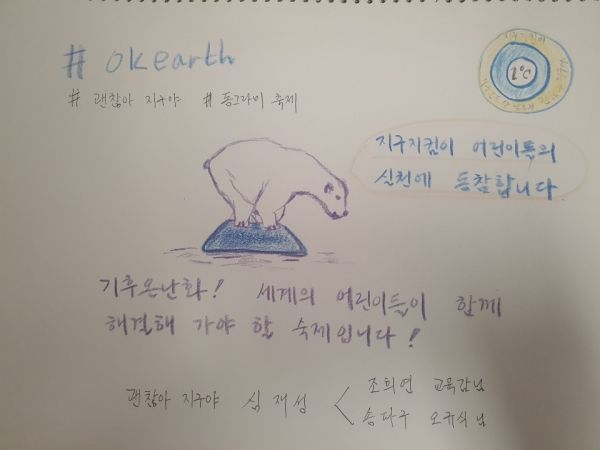 # okearth
# 괜찮아 지구야 # 동그라미 축제
1℃
지구지킴이 어린이들의
실천에 동참합니다.
기후온난화! 세계의 어린이들이 함께
해결해 가야 할 숙제입니다!
괜찮아 지구야 심재성 < 조희연 교육감님
송다구 오규식 님